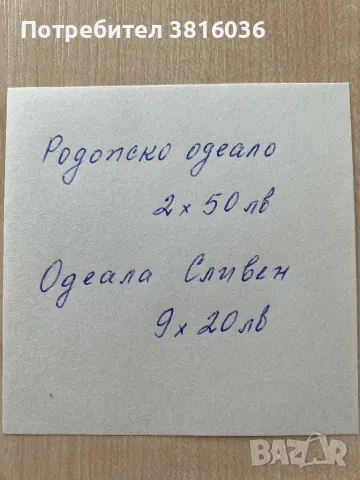 Потребител 3816036
Родопско одеало
2 x 50 лв
Одеала Сливен
9 x 20 лв
BAZAR